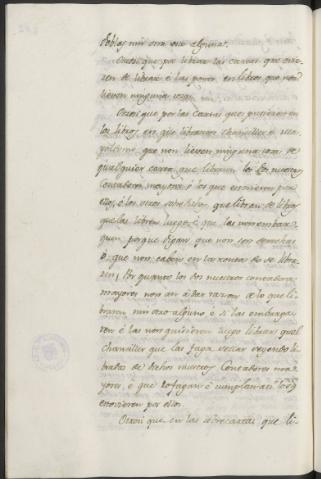 doblas nin otra cosa alguna.
Otrosi que por librar las cartas que ovie-
ren de librar é las poner en libros que non
lieven ninguna cosa.
Otrosi que por las cartas que pusieren en
los libros, en que libraren chanciller é
que non lieven ninguna cosa de
qualquier carta que libraren los dos nuestros
Contadores mayores é los que estovieren por
ellos, é los otros sobredichos que libran de libros
que las libren luego é que las non embar-
guen porque digan que non son derechas
ó que non caben en las rentas do se libra-
ren, Por quanto los dos nuestros contadores
mayores nos an á dar razon de lo que li-
braren sin eso alguno é si las embarga-
ren é las non quisieren luego librar, quel
chanciller que las faga sellar veyendo li-
bradas de dichos nuestros Contadores ma-
yores é que lo fagan é cumplan así los que
estovieren por ellos.
Otrosi que en las cartas que li-